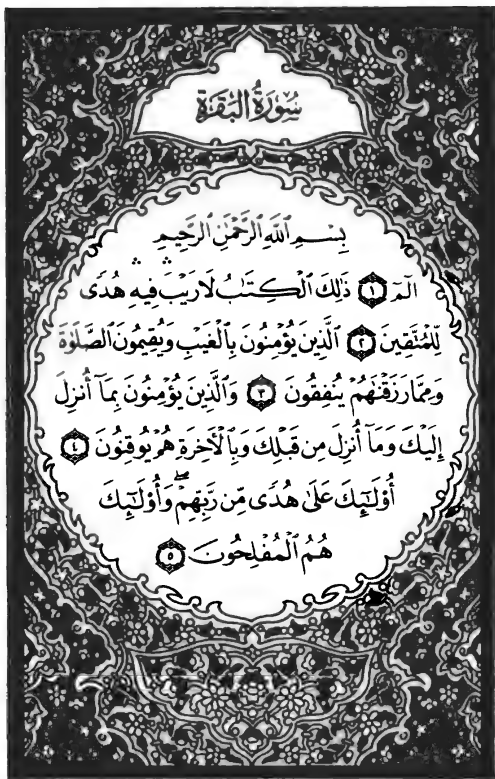 سُورَةُ البَقَرَةِ
بِسْمِ ٱللَّهِ ٱلرَّحْمَٰنِ ٱلرَّحِيمِ
الٓمٓ ١ ذَٰلِكَ ٱلْكِتَٰبُ لَا رَيْبَ ۛ فِيهِ ۛ هُدًى
لِّلْمُتَّقِينَ ٢ ٱلَّذِينَ يُؤْمِنُونَ بِٱلْغَيْبِ وَيُقِيمُونَ ٱلصَّلَوٰةَ
وَمِمَّا رَزَقْنَٰهُمْ يُنفِقُونَ ٣ وَٱلَّذِينَ يُؤْمِنُونَ بِمَآ أُنزِلَ
إِلَيْكَ وَمَآ أُنزِلَ مِن قَبْلِكَ وَبِٱلْآخِرَةِ هُمْ يُوقِنُونَ ٤
أُو۟لَٰٓئِكَ عَلَىٰ هُدًى مِّن رَّبِّهِمْ ۖ وَأُو۟لَٰٓئِكَ
هُمُ ٱلْمُفْلِحُونَ ٥